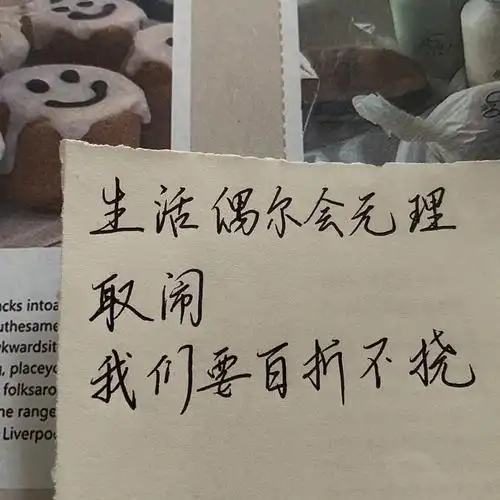 生活偶尔会无理
取闹
我们要百折不挠
cks intoa
uthesame
kwardsit
, placeyo
folksaro
ne range
Liverpo